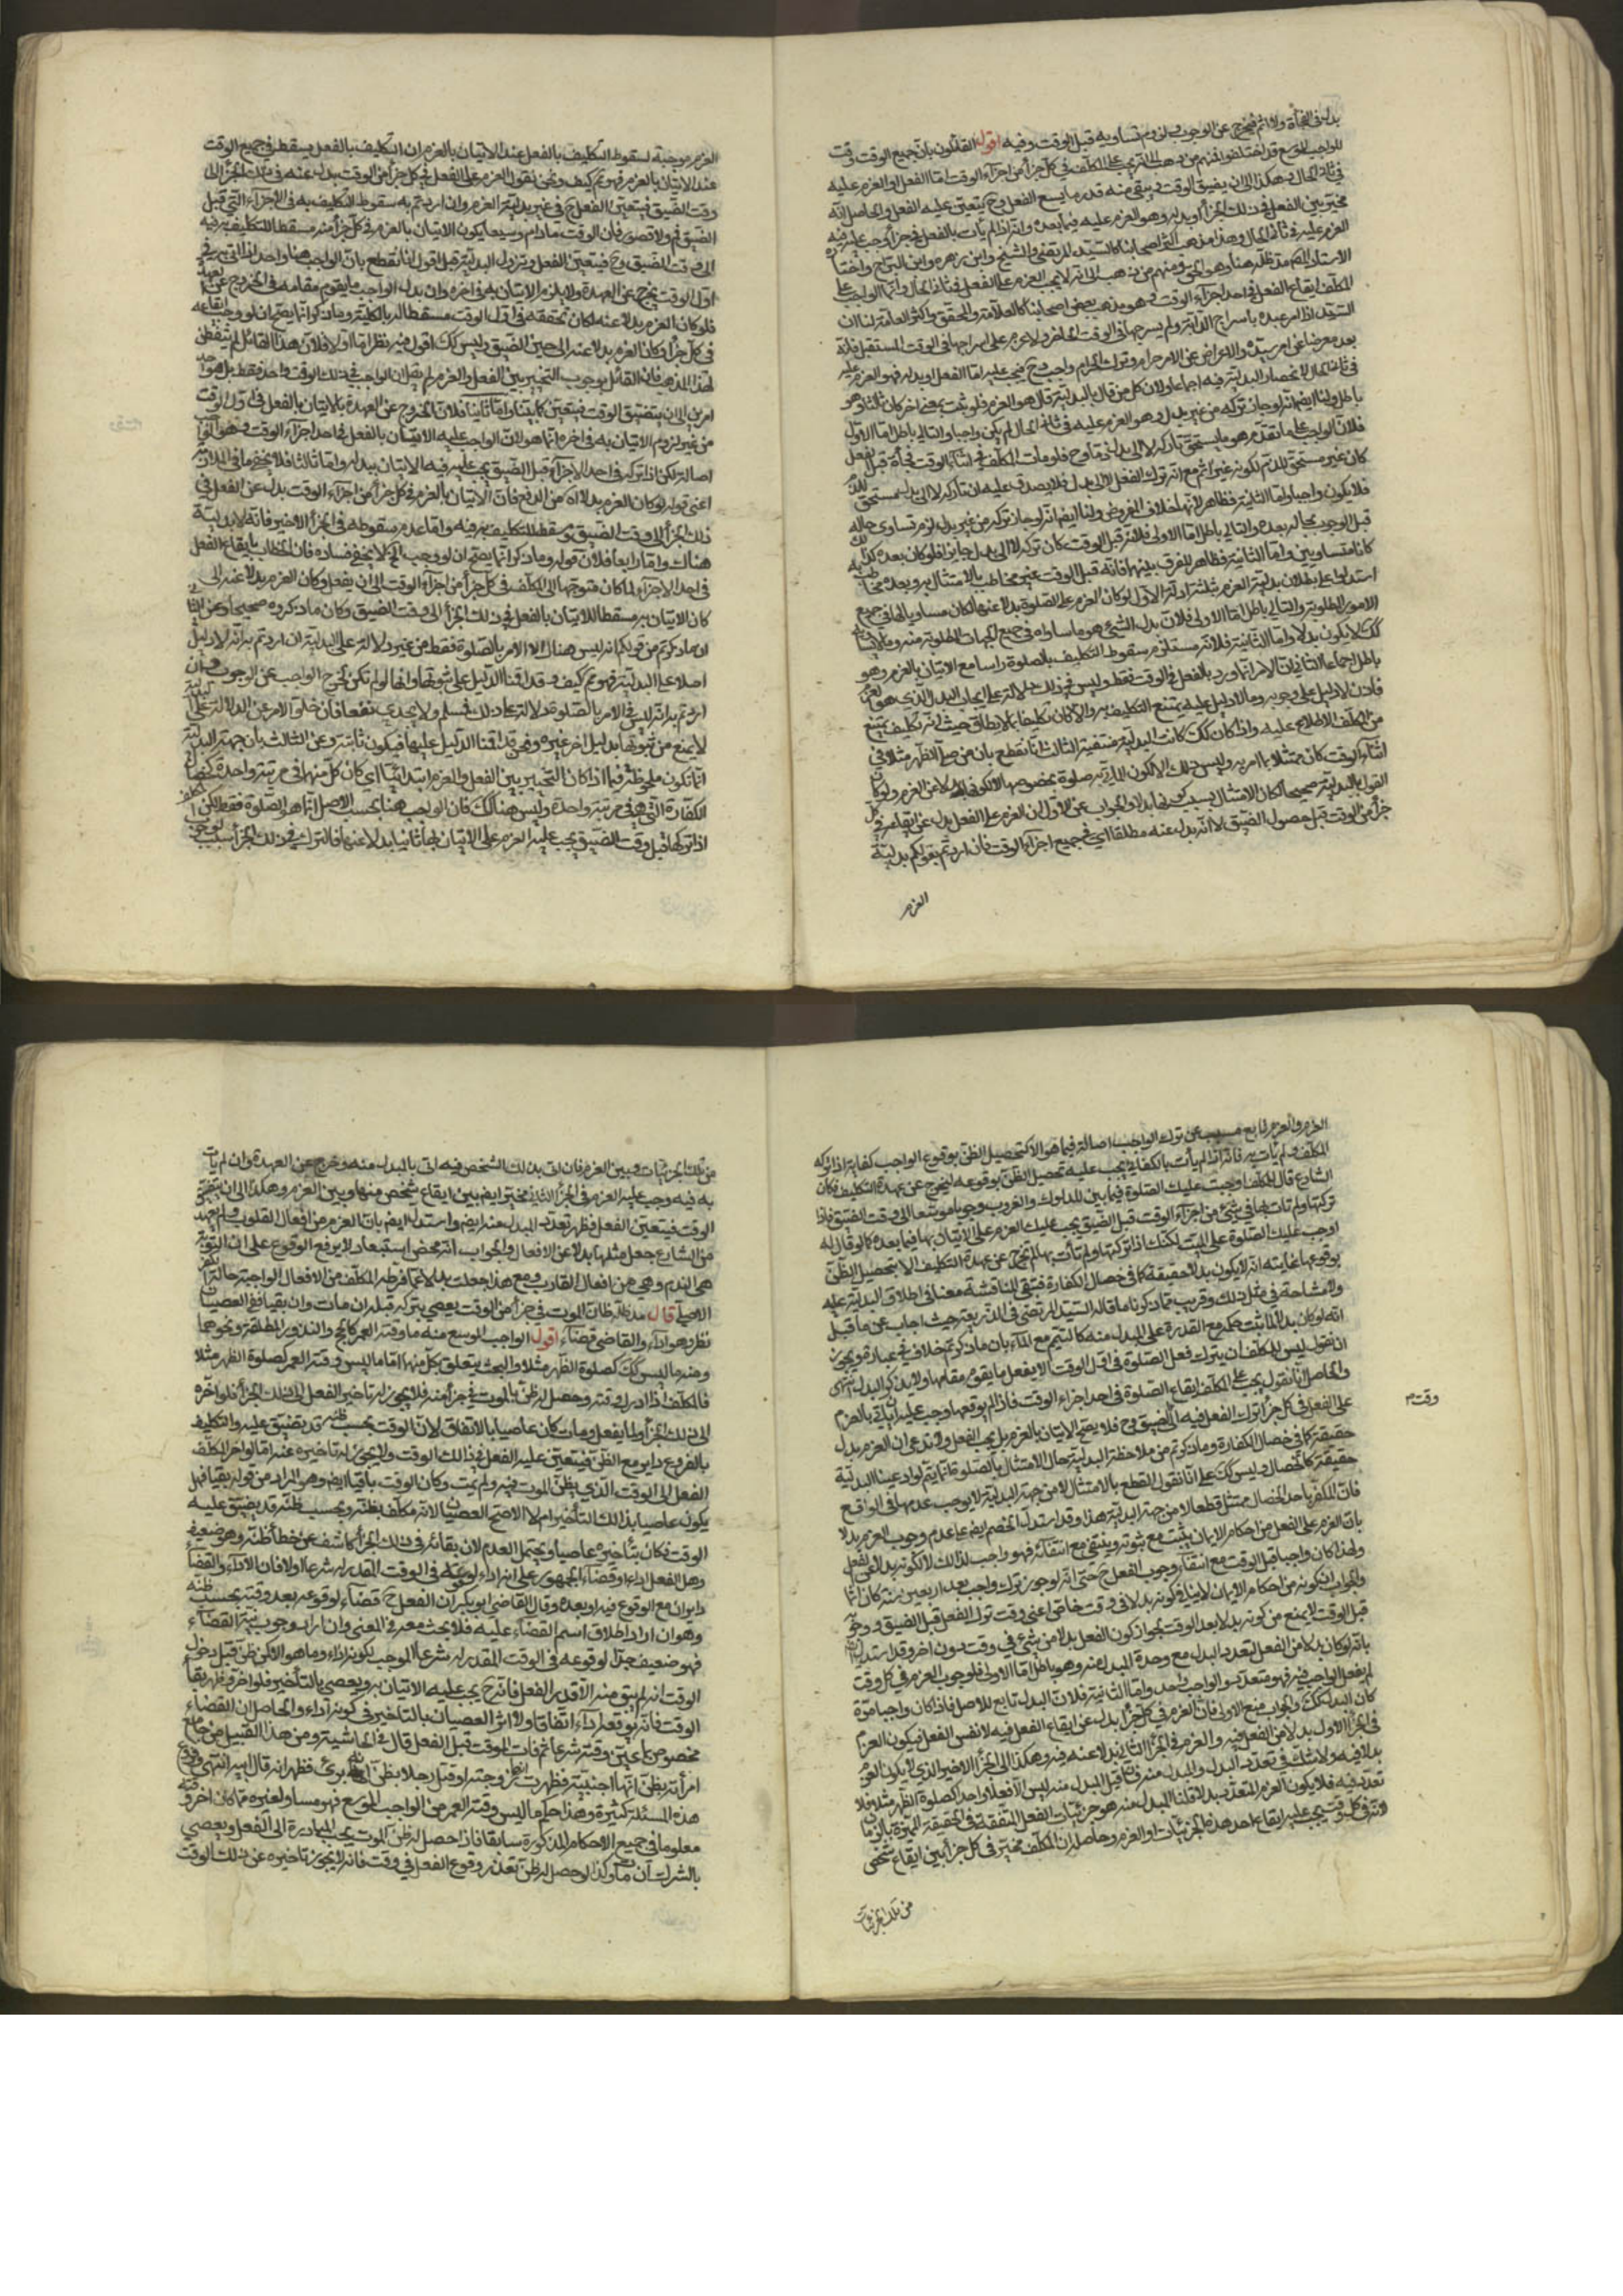 بدله في الفجأة ولا اثم فيخرج عن الوجوب ولزوم تساويه قبل الوقت وفيه اقول القائلون بان جميع الوقت وقت
للواجب الموسع قد اختلفوا فمنهم من ذهب الى انه يجب على المكلف في كل جزء من اجزاء الوقت اما الفعل او العزم عليه
في ثاني الحال وهكذا الى ان يضيق الوقت ويبقى منه قدر ما يسع الفعل وح يتعين عليه الفعل والحاصل انه
مخير بين الفعل في ذلك الجزء وبدله وهو العزم عليه فيما بعده وانه اذا لم يأت بالفعل في جزء وجب عليه فيه
العزم عليه في ثاني الحال وهذا مذهب اكثر اصحابنا كالسيد المرتضى والشيخ وابن زهره وابن البراج واختاره
الاستاد مد ظله هنا وهو الحق ومنهم من ذهب الى انه لا يجب العزم على الفعل في ثاني الحال وانما الواجب على
المكلف ايقاع الفعل في احد اجزاء الوقت وهو مذهب بعض اصحابنا كالعلامة والمحقق واكثر العامة لنا ان
السيد اذا امر عبده باسراج الدابة ولم يسرجها في الوقت الحاضر ولا عزم على اسراجها في الوقت المستقبل فانه
يعد معرضا عن امر سيده والاعراض عن الامر حرام وترك الحرام واجب وح فيجب عليه اما الفعل او بدله فهو العزم عليه
في ثاني الحال لانحصار البدلية فيه اجماعا ولان كل من قال بالبدلية قال هو العزم فلو ثبت بمعنى اخر كان ثالثا وهو
باطل ولنا ايضا انه لو جاز تركه من غير بدل وهو العزم عليه في ثاني الحال لم يكن واجبا والتالي باطل اما الاول
فلان الواجب على ما تقدم هو ما يستحق تاركه لا الى بدل ذما وح فلو مات المكلف في اثناء الوقت فجأة قبل الفعل
كان غير مستحق للذم لكونه غير اثم مع انه ترك الفعل لا الى بدل فلا يصدق عليه ان تاركه لا الى بدل مستحق للذم
فلا يكون واجبا واما الثانية فظاهر لانها خلاف المفروض ولنا ايضا انه لو جاز تركه من غير بدل لزم تساوي حاله
قبل الوجوب بحاله بعده والتالي باطل اما الاولى فلانه قبل الوقت كان تركه لا الى بدل جايزا فلو كان بعده كذلك
كانا متساويين واما الثانية فظاهر للفرق بينهما فانه قبل الوقت غير مخاطب بالامتثال به وبعده مخاطب به
استدلوا على بطلان بدلية العزم بثلثة ادلة الاول لو كان العزم على الصلوة بدلا عنها لكان مساويا لها في جميع
الامور المطلوبة والتالي باطل اما الاولى فلان بدل الشئ هو ما ساواه في جميع الجهات المطلوبة منه وما لا يساويه
كذلك لا يكون بدلا واما الثانية فلانه مستلزم سقوط التكليف بالصلوة راسا مع الاتيان بالعزم وهو
باطل اجماعا الثاني ان الامر انما ورد بالفعل في الوقت فقط وليس في ذلك دلالة على ايجاب البدل الذي هو العزم
فاذن لا دليل على وجوبه وما لا دليل عليه يمتنع التكليف به والا كان تكليفا بما لا يطاق حيث انه تكليف يمتنع
من المكلف الاطلاع عليه واذا كان كذلك كانت البدلية منتفية الثالث انا نقطع بان من صلى الظهر مثلا في
اثناء الوقت كان ممتثلا بما امر به وليس ذلك الا لكون المأتي به صلوة بخصوصها لا لكونها بدلا عن العزم ولو كان
القول بالبدلية صحيحا لكان الامتثال بسبب كونها بدلا والجواب عن الاول ان العزم على الفعل بدل عن ايقاعه في كل
جزء من الوقت قبل حصول الضيق لا انه بدل عنه مطلقا اي في جميع اجزاء الوقت فان اردتم بقولكم بدلية
العزم
العزم موجبة لسقوط التكليف بالفعل عند الاتيان بالعزم ان التكليف بالفعل يسقط في جميع الوقت
عند الاتيان بالعزم فهو ثم كيف ونحن نقول العزم على الفعل في كل جزء من الوقت بدل عنه في ذلك الجزء الى
وقت الضيق فيتعين الفعل ح في غير بدلية العزم وان اردتم به سقوط التكليف به في الاجزاء التي قبل
الضيق فم ولا قصور فان الوقت ما دام وسيعا يكون الاتيان بالعزم في كل جزء منه مسقطا للتكليف به فيه
الى وقت الضيق وح فيتعين الفعل وتزول البدلية قيل اقول انا نقطع بان الواجب هنا واحد اذا اتى به في
اول الوقت يخرج عن العهدة ولا يلزم الاتيان به في اخره وان بدل الواجب ما يقوم مقامه في الخروج عن العهدة
فلو كان العزم بدلا عنه لكان تحققه في اول الوقت مسقطا له بالكلية وما ذكروا انما يصح ان لو وجب ايقاعه
في كل جزء وكان العزم بدلا عنه الى حين الضيق وليس كك اقول فيه نظر اما اولا فلان هذا القائل لم يتفطن
لهذا المذهب فان القائل بوجوب التخيير بين الفعل والعزم لم يقل ان الواجب في ذلك الوقت واحد فقط بل هو احد
امرين الى ان يتضيق الوقت فيتعين كما بيّنا واما ثانيا فلان الخروج عن العهدة بالاتيان بالفعل في اول الوقت
من غير لزوم الاتيان به في اخره انما هو لان الواجب عليه الاتيان بالفعل في احد اجزاء الوقت وهو الواجب
اصالة لكن اذا تركه في احد الاجزاء قبل الضيق يجب عليه فيه الاتيان ببدله واما ثالثا فلا يخفى ما في الملازمة
اعني قوله لو كان العزم بدلا اه من الدفع فان الاتيان بالعزم في كل جزء من اجزاء الوقت بدل عن الفعل في
ذلك الجزء الى وقت الضيق ومسقط للتكليف به فيه واما عدم سقوطه في الجزء الاخير فانه لا بدلية
هناك واما رابعا فلان قوله وما ذكروا انما يصح ان لو وجب الخ لا يخفى فساده فان الخطاب بايقاع الفعل
في احد الاجزاء لما كان متوجها الى المكلف في كل جزء من اجزاء الوقت الى ان يفعل وكان العزم بدلا عنه الى
كان الاتيان به مسقطا للاتيان بالفعل في ذلك الجزء الى وقت الضيق وكان ما ذكروه صحيحا وعن الثاني
ان ما ذكرتم من قولكم انه ليس هناك الا الامر بالصلوة فقط من غير دلالة على البدلية ان اردتم به انه لا دليل
اصلا على البدلية فهو ثم كيف وقد اقمنا الدليل على ثبوتها وانها لو لم تكن لخرج الواجب عن الوجوب وان
اردتم به انه ليس في الامر بالصلوة دلالة على ذلك فمسلم ولا يجدي نفعا فان خلو الامر عن الدلالة على البدلية
لا يمنع من ثبوتها بدليل اخر غيره ونحن قد اقمنا الدليل عليها فيكون ثابتة وعن الثالث بان جهة البدلية
انما تكون ملحوظة فيما اذا كان التخيير بين الفعل والعزم ابتدائيا اي كان كل منهما في مرتبة واحدة كخصال
الكفارة التي هي في مرتبة واحدة وليس هنا كك فان الواجب هنا بحسب الاصل انما هو الصلوة فقط لكن المكلف
اذا تركها قبل وقت الضيق يجب عليه العزم على الاتيان بها ثانيا بدلا عنها فالترك في ذلك الجزء سبب لوجوب
العزم والعزم تابع مسبب عن ترك الواجب اصالة فيما هو الا كتحصيل الظن بوقوع الواجب كفاية اذا تركه
المكلف ولم يأت به فانه اذا لم يأت بالكفاية يجب عليه تحصيل الظن بوقوعه ليخرج عن عهدة التكليف فكان
الشارع قال للمكلف اوجبت عليك الصلوة فيما بين الدلوك والغروب وجوبا موسعا الى وقت الضيق فاذا
تركتها ولم تأت بها في شئ من اجزاء الوقت قبل الضيق يجب عليك العزم على الاتيان بها فيما بعده كما لو قال له
اوجب عليك الصلوة على الميت لكنك اذا تركتها ولم تأت بها لم تخرج عن عهدة التكليف الا بتحصيل الظن
بوقوعها غايته انه لا يكون بدلا حقيقة كما في خصال الكفارة فتبقى المناقشة معنا في اطلاق البدلية عليه
ولا مشاحة في مثل ذلك وقريب مما ذكرنا ما قاله السيد المرتضى في الذريعة حيث اجاب عن ما قيل
انه لو كان بدلا لما ثبت حكمه مع القدرة على المبدل منه كالتيمم مع الماء بان ما ذكرتم خلاف في عبارة ويجوز
ان نقول ليس للمكلف ان يترك فعل الصلوة في اول الوقت الا بفعل ما يقوم مقامها ولا يذكر البدل انتهى
والحاصل انا نقول يجب على المكلف ايقاع الصلوة في احد اجزاء الوقت فاذا لم يوقعها وجب عليه ان يأتي بالعزم
على الفعل في كل جزء ترك الفعل فيه الى الضيق وح فلا يصح الاتيان بالعزم بل يجب الفعل ولا ندعي ان العزم بدل
وقت م
حقيقة كما في خصال الكفارة وما ذكرتم من ملاحظة البدلية حال الامتثال بالصلوة فانما يتم لو ادعينا البدلية
حقيقة كالخصال وليس كك على انا نقول القطع بالامتثال لا من جهة البدلية لا يوجب عدمها في الواقع
فان المكفر باحد الخصال ممتثل قطعا لا من جهة البدلية هذا وقد استدل الخصم ايضا على عدم وجوب العزم بدلا
بان العزم على الفعل من احكام الايمان يثبت مع ثبوته وينتفي مع انتفائه فهو واجب لذلك لا لكونه بدلا عن الفعل
ولهذا كان واجبا قبل الوقت مع انتفاء وجوب الفعل ح حتى انه لو جوز ترك واجب بعد اربعين سنة كان اثما
والجواب ان كونه من احكام الايمان لا ينافي كونه بدلا في وقت خاص اعني وقت ترك الفعل قبل الضيق ووجوبه
قبل الوقت لا يمنع من كونه بدلا بعد الوقت لجواز كون الفعل بدلا من شئ في وقت دون اخر وقد استدل
بانه لو كان بدلا من الفعل لتعدد البدل مع وحدة المبدل عنه وهو باطل اما الاولى فلوجوب العزم في كل وقت
لم يفعل الواجب فيه فهو متعدد والواجب واحد واما الثانية فلان البدل تابع للاصل فاذا كان واجبا مرة
كان البدل كك والجواب منع الاولى فان العزم في كل جزء بدل عن ايقاع الفعل فيه لا نفس الفعل فيكون العزم
في الجزء الاول بدلا من الفعل فيه والعزم في الجزء الثاني بدلا عنه فيه وهكذا الى الجزء الاخير الذي لا يكون العزم
بدلا فيه ولا شك في تعدد البدل والمبدل منه فان قيل البدل منه ليس الا فعلا واحدا كصلوة الظهر مثلا فلا
تعدد فيه فلا يكون العزم المتعدد بدلا قلنا المبدل منه هو جزئيات الفعل المتفقة في الحقيقة المتميزة بالزمان
وانه في كل وقت يجب عليه ايقاع احد هذه الجزئيات او العزم وحاصله ان المكلف مخير في كل جزء بين ايقاع شخص
من تلك الجزئيات
من تلك الجزئيات وبين العزم فان اتى بذلك الشخص فيه اتى بالمبدل منه وخرج عن العهدة وان لم يأت
به فيه وجب عليه العزم في الجزء الثاني مخير ايضا بين ايقاع شخص منها وبين العزم وهكذا الى ان يتضيق
الوقت فيتعين الفعل فظهر تعدد المبدل منه ايضا واستدل ايضا بان العزم من افعال القلوب ولم يعهد
من الشارع جعل مثلها بدلا عن الافعال والجواب انه محض استبعاد لا يرفع الوقوع على ان التوبة
هي الندم وهي من افعال القلوب ومع هذا جعلت بدلا عما فرط المكلف من الافعال الواجبة حالة الكفر
الاصلي قال مد ظله ظان الموت في جزء من الوقت يعصي بتركه قبله ان مات وان بقي فلا في العصيان
نظر وهو اداء والقاضي قضاء اقول الواجب الموسع منه ما وقته العمر كالحج والنذور المطلقة ونحوهما
ومنه ما ليس كك كصلوة الظهر مثلا والبحث يتعلق بكل منهما اما ما ليس وقته العمر كصلوة الظهر مثلا
فالمكلف اذا ادرك وقته وحصل له ظن بالموت في جزء منه فلا يجوز له تاخير الفعل الى ذلك الجزء فلو اخره
الى ذلك الجزء ولما يفعل ومات كان عاصيا بالاتفاق لان الوقت بحسب ظنه قد يتضيق عليه والتكليف
بالفروع داير مع الظن فيتعين عليه الفعل في ذلك الوقت ولا يجوز له تاخيره عنه اما لو اخر المكلف
الفعل الى الوقت الذي يظن الموت فيه ولم يمت وكان الوقت باقيا ايضا وهو المراد من قوله بقي فهل
يكون عاصيا بذلك التأخير ام لا الاصح العصيان لانه مكلف بظنه وبحسب ظنه قد يضيق عليه
الوقت فكان بتأخيره عاصيا ويحتمل العدم لان بقائه في ذلك الجزء كاشف عن خطأ ظنه وهو ضعيف
وهل الفعل اداء او قضاء الجمهور على انه اداء لوقوعه في الوقت المقدر له شرعا اولا فان الاداء والقضاء
دايران مع الوقوع فيه او بعده وقال القاضي ابو بكر ان الفعل ح قضاء لوقوعه بعد وقته بحسب ظنه
وهو ان اراد اطلاق اسم القضاء عليه فلا بحث معه في المعنى وان اراد وجوب نية القضاء
فهو ضعيف جدا لوقوعه في الوقت المقدر له شرعا الموجب لكونه اداء وما هو الا كمن ظن قبل دخول
الوقت انه لم يبق منه الا قدر الفعل فانه ح يجب عليه الاتيان به ويعصي بالتأخير فلو اخر فظهر بقاء
الوقت فانه يوقعه اداء اتفاقا ولا اثر للعصيان بالتأخير في كونه اداء والحاصل ان القضاء
مخصوص بما عين وقته شرعا ثم فات الوقت قبل الفعل قال في الحاشية ومن هذا القبيل من جامع
امرأته بظن انها اجنبية فظهرت زوجته او قتل رجلا بظن انه بريء فظهر انه قاتل ابيه انتهى وفروع
هذه المسئلة كثيرة وهذا حكم ما ليس وقته العمر من الواجب الموسع فهو مساو لغيره مما كان اخر وقته
معلوما في جميع الاحكام المذكورة سابقا فاذا حصل له ظن الموت يجب المبادرة الى الفعل ويعصي
بالترك ان مات وكذا لو حصل له ظن تعذر وقوع الفعل في وقت فانه لا يجوز تاخيره عن ذلك الوقت